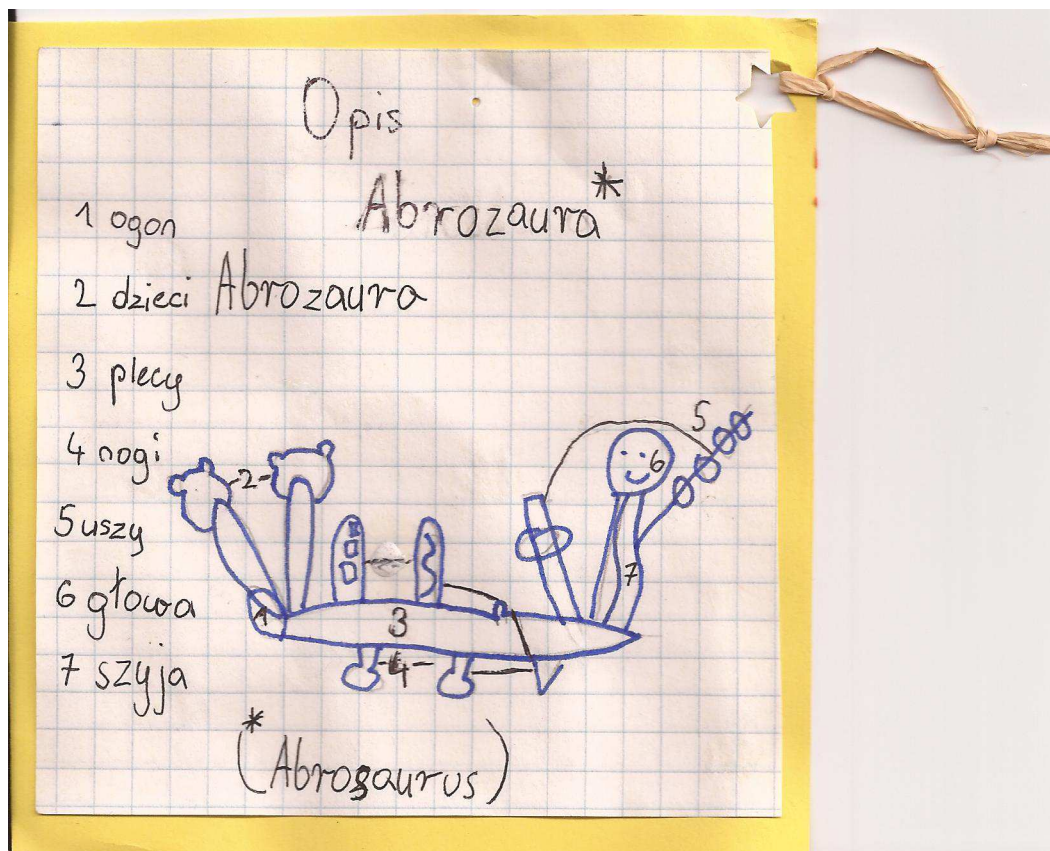 Opis
Abrozaura*
1 ogon
2 dzieci Abrozaura
3 plecy
4 nogi
5 uszy
6 głowa
7 szyja
5
6
2
7
1
3
4
(*Abrosaurus)